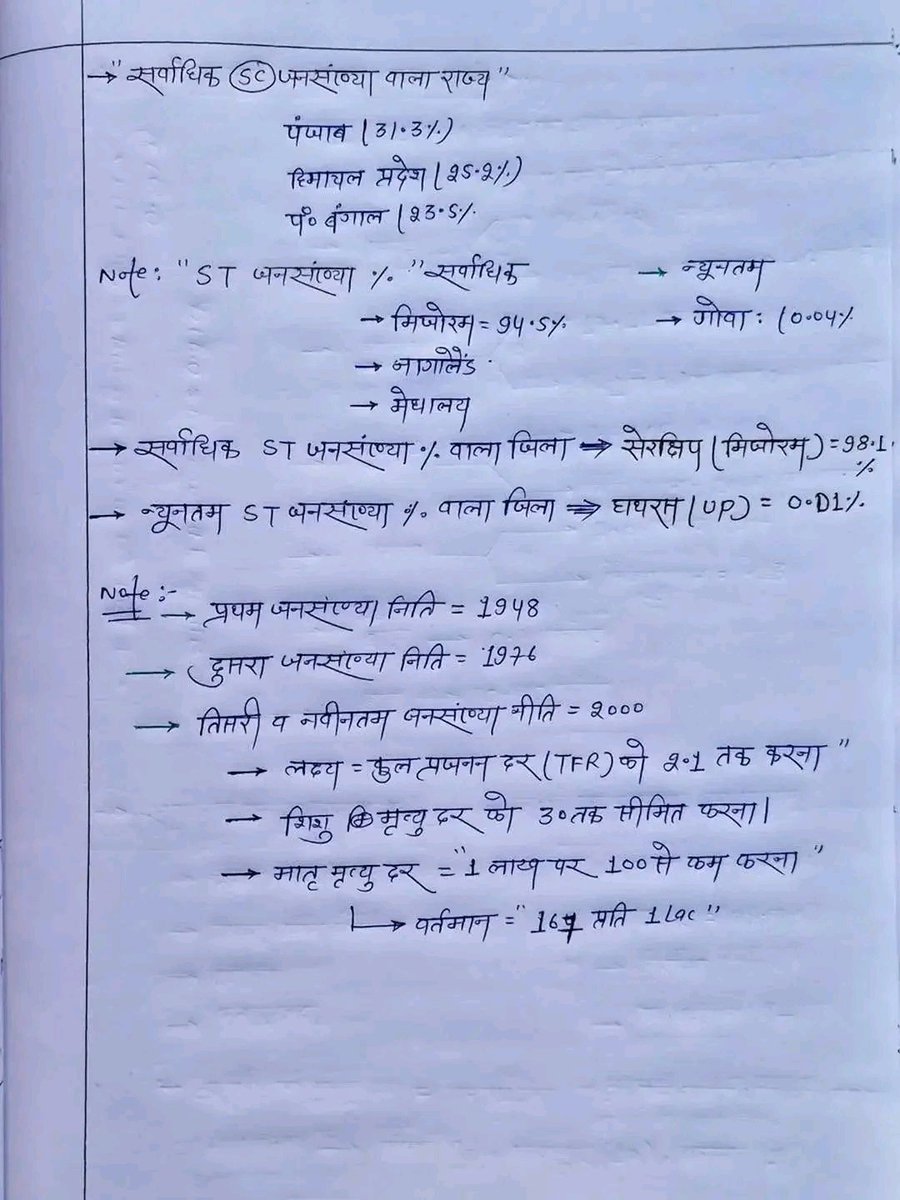 → "सर्वाधिक SC जनसंख्या वाला राज्य"
पंजाब (31.3%)
हिमाचल प्रदेश (25.2%)
प० बंगाल (23.5%
Note: "ST जनसंख्या %" सर्वाधिक → न्यूनतम
→ मिजोरम = 94.5% → गोवा : (0.04%
→ नागालैंड
→ मेघालय
→ सर्वाधिक ST जनसंख्या % वाला जिला ⇒ सेरक्षिप (मिजोरम) = 98.1
%
→ न्यूनतम ST जनसंख्या % वाला जिला ⇒ हाथरस (UP) = 0.01%
Note :-
→ प्रथम जनसंख्या निति = 1948
→ दुसरा जनसंख्या निति = 1976
→ तिसरी व नवीनतम जनसंख्या नीति = 2000
→ लक्ष्य = कुल प्रजनन दर (TFR) को 2.1 तक करना"
→ शिशु मृत्यु दर को 30 तक सीमित करना।
→ मातृ मृत्यु दर = "1 लाख पर 100 से कम करना"
→ वर्तमान = "167 प्रति 1 Lac"